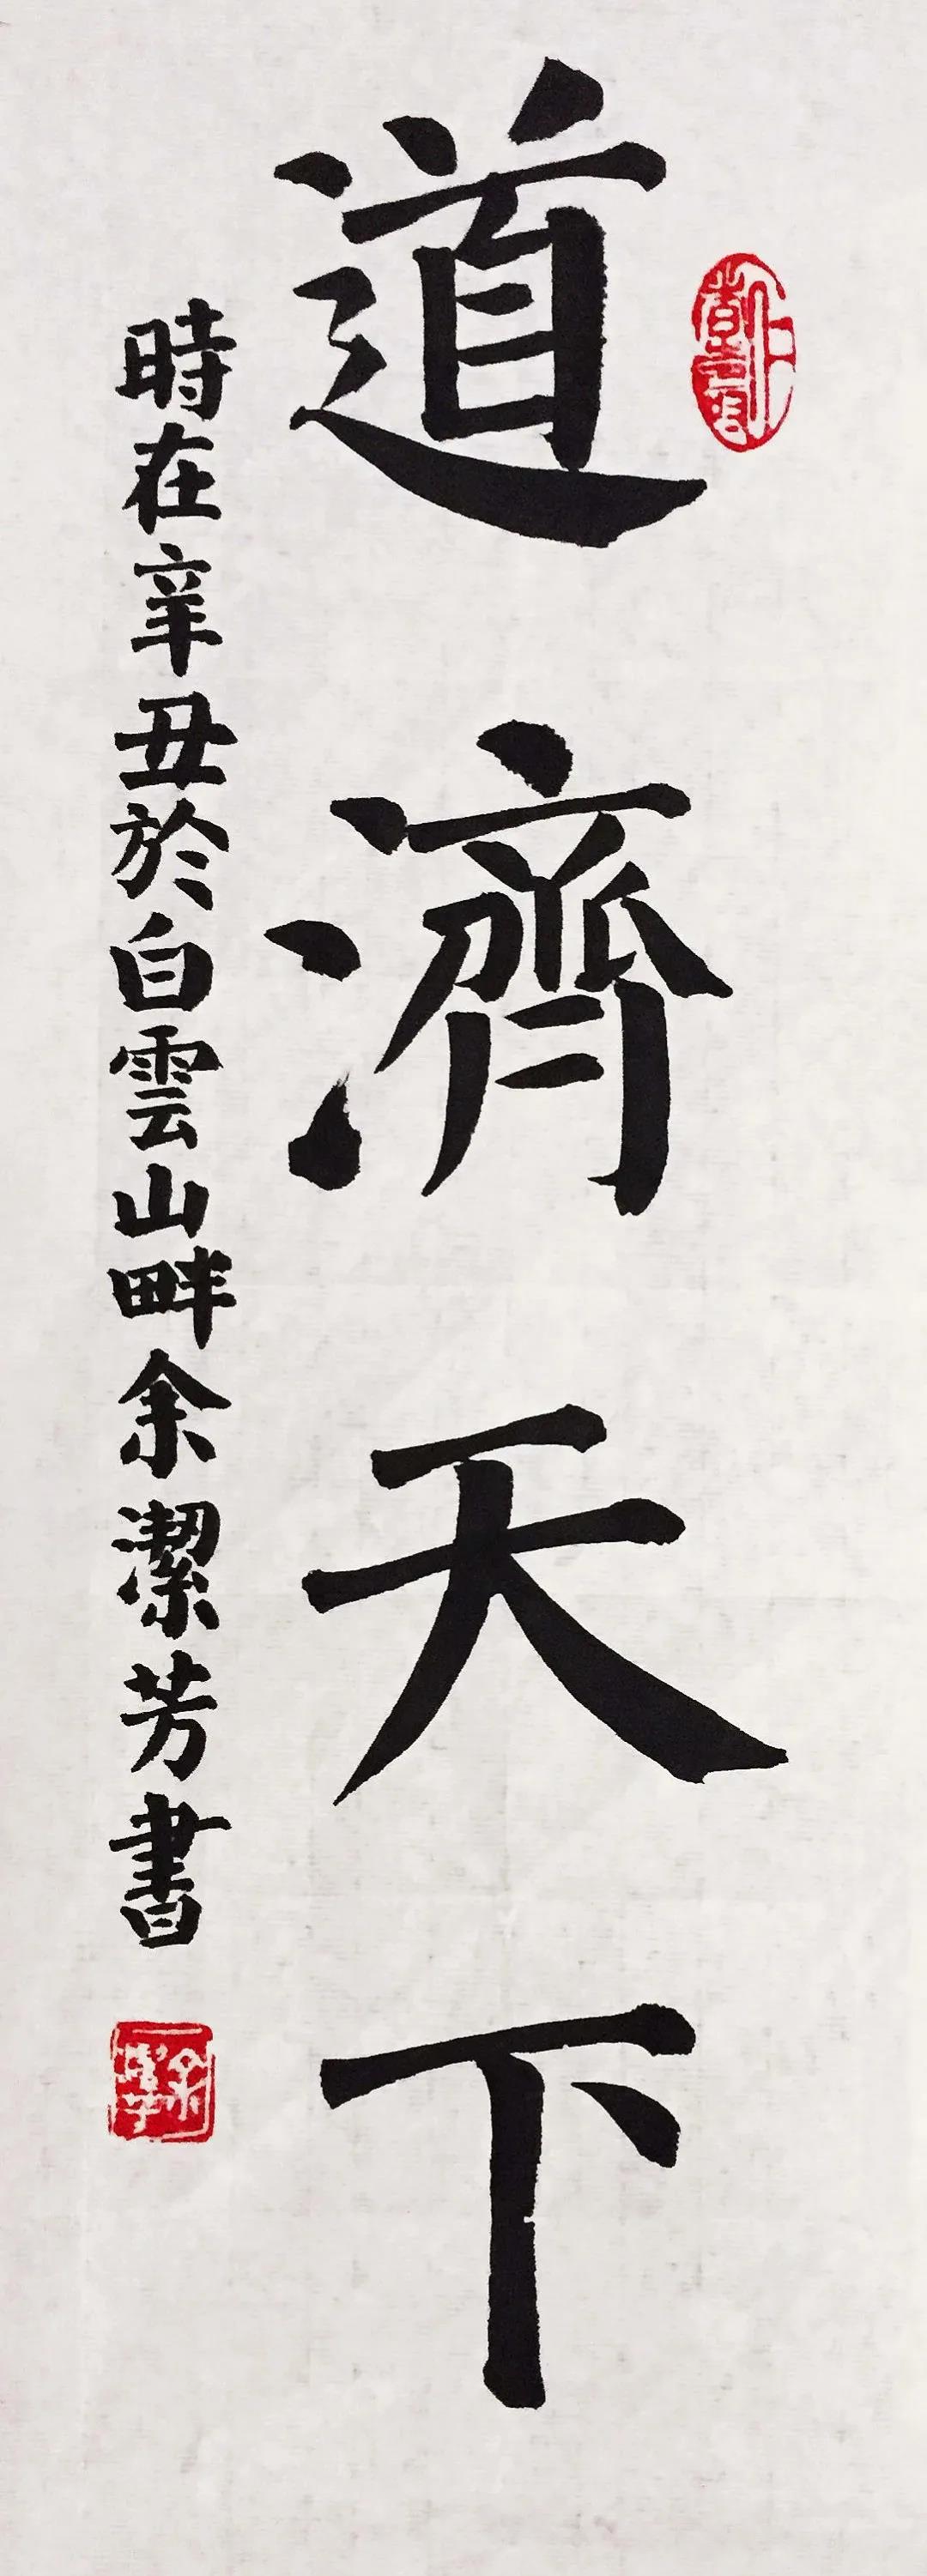 道濟天下
時在辛丑於白雲山畔余潔芳書